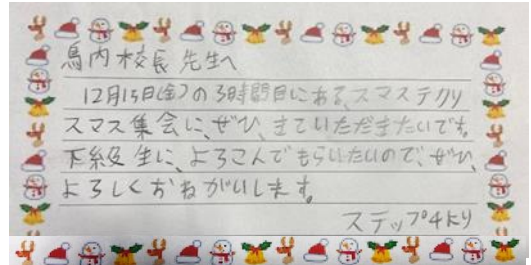 鳥内校長先生へ
12月15日(金)の3時間目にある、スマステクリ
スマス集会に、ぜひ、きていただきたいです。
下級生に、よろこんでもらいたいので、ぜひ、
よろしくおねがいします。
ステップ4より